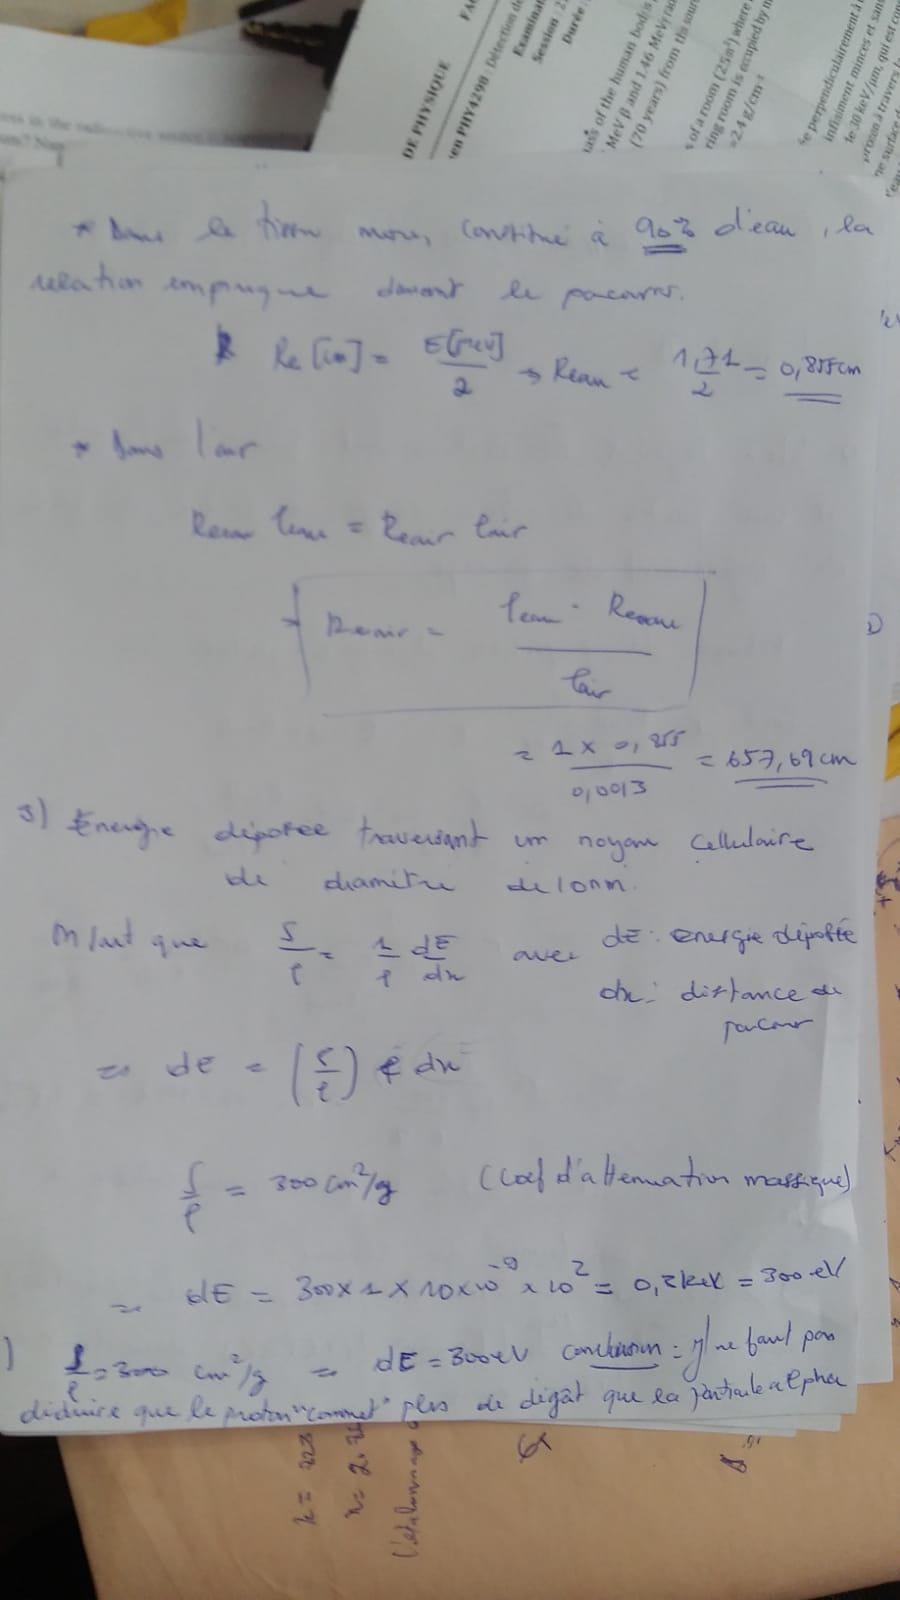 DE PHYSIQUE
FA
en PHY4298 : Détection de
Examinat
Session : 2
Durée :
ass of the human body is
MeV β and 1.46 MeV γ ra
(70 years) from this sour
of a room (25m²) where
ring room is ecupied by m
=2.4 g/cm³
e perpendiculairement à
infiniment minces et san
le 30 keV/µm, qui est co
proton à travers l
ne surface d
* Dans le tissu mou, constitué à 90% d'eau, la
relation empirique donnant le parcours.
Re [cm] = E[MeV]/2 → Reau = 1,71/2 = 0,855cm
* Dans l'air
Reau ρeau = Reair ρair
→ Reair = ρeau · Reau / ρair
= 1 x 0,855 / 0,0013 = 657,69 cm
3) Energie déposée traversant un noyau cellulaire
de diamètre de 10nm.
M/ant que S/ρ = 1/ρ dE/dx avec dE : energie déposée
dx : distance de
parcour
=> dE = (S/ρ) ρ dx
S/ρ = 300 cm²/g (coef d'attenuation massique)
=> dE = 300 x 1 x 10 x 10⁻⁹ x 10² = 0,3 keV = 300 eV
) S/ρ = 300 cm²/g => dE = 300 eV conclusion : il ne faut pas
déduire que le proton "commet" plus de dégât que la particule alpha